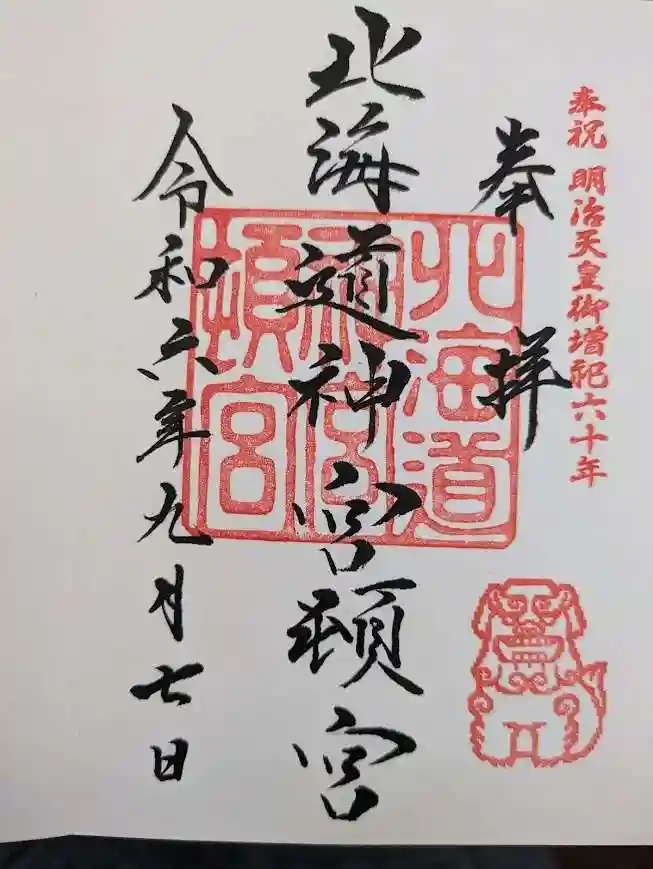 奉祝 明治天皇御増祀六十年
奉拝
北海道神宮頓宮
北海道
神宮
頓宮
令和六年九月七日